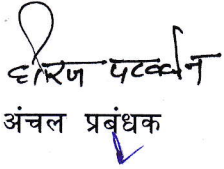 धीरज पटवर्धन
अंचल प्रबंधक